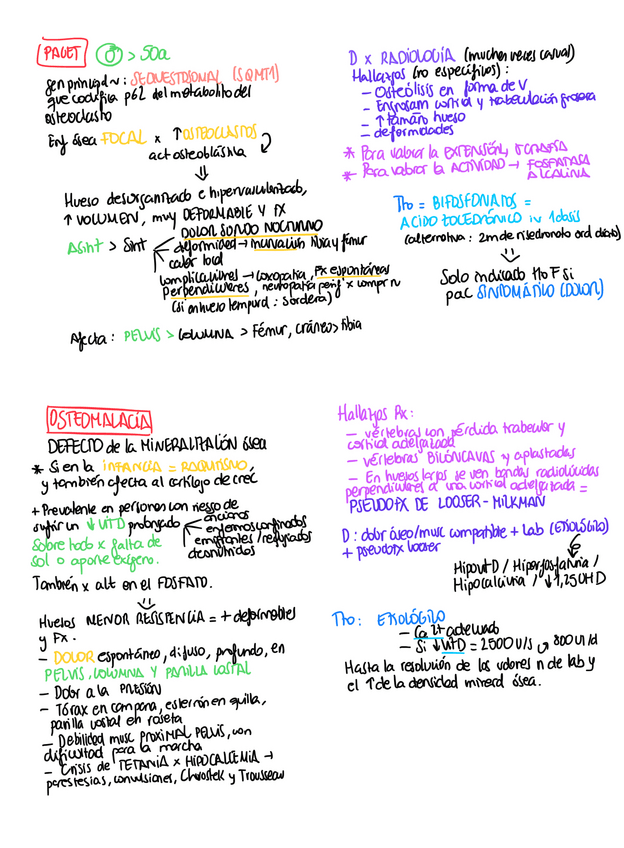 PAGET ♂ > 50a
gen principal n: SEQUESTRIONAL (SQMT1)
que codifica p62 del metabolito del
osteoclasto
Enf ósea FOCAL x ↑OSTEOCLASTOS
act osteoblástica
⇓
Hueso desorganizado e hipervascularizado,
↑ VOLUMEN, muy DEFORMABLE Y FX
DOLOR SORDO NOCTURNO
Asint > Sint
deformidad → incurvación tibia y fémur
calor local
complicaciones → coxopatía, Fx espontáneas
Perpendiculares, neuropatía perif x compr n
(si en hueso temporal: sordera)
Afecta: PELVIS > COLUMNA > Fémur, cráneo, tibia
D x RADIOLOGÍA (muchas veces casual)
Hallazgos (no específicos):
- Osteólisis en forma de V
- Engrosam cortical y trabeculación grosera
- ↑ tamaño hueso
- deformidades
* Para valorar la EXTENSIÓN, GGRAFÍA
* Para valorar la ACTIVIDAD → FOSFATASA
ALCALINA
Tto = BIFOSFONATOS =
ACIDO ZOLEDRÓNICO iv 1 dosis
(alternativa: 2m de risedronato oral diario)
⇓
Solo indicado tto F si
pac SINTOMÁTICO (DOLOR)
OSTEOMALACIA
DEFECTO de la MINERALIZACIÓN ósea
* Si en la INFANCIA = RAQUITISMO,
y también afecta al cartílago de crec
+ Prevalente en personas con riesgo de
sufrir un ↓VITD prolongado
ancianos
enfermos confinados
emigrantes / refugiados
desnutridos
Sobre todo x falta de
sol o aporte exógeno.
También x alt en el FOSFATO.
⇓
Huesos MENOR RESISTENCIA = + deformables
y Fx.
- DOLOR espontáneo, difuso, profundo, en
PELVIS, COLUMNA Y PARILLA COSTAL
- Dolor a la PRESIÓN
- Tórax en campana, esternón en quilla,
parilla costal en roseta
- Debilidad musc PROXIMAL PELVIS, con
dificultad para la marcha
- Crisis de TETANIA x HIPOCALCEMIA →
parestesias, convulsiones, Chvostek y Trousseau
Hallazgos Rx:
- vértebras con pérdida trabecular y
cortical adelgazada
- vértebras BICÓNCAVAS y aplastadas
- En huesos largos se ven bandas radiolúcidas
perpendiculares a una cortical adelgazada =
PSEUDOFX DE LOOSER-MILKMAN
D: dolor óseo/musc compatible + Lab (ETIOLÓGICO)
+ pseudofx looser
Hipovit D / Hiperfosfaturia /
Hipocalciuria / ↓1,25OHD
Tto: ETIOLÓGICO
- Ca2+ adecuado
- Si ↓VITD = 2500 U/s ↪ 800 UI/d
Hasta la resolución de los valores n de lab y
el ↑ de la densidad mineral ósea.